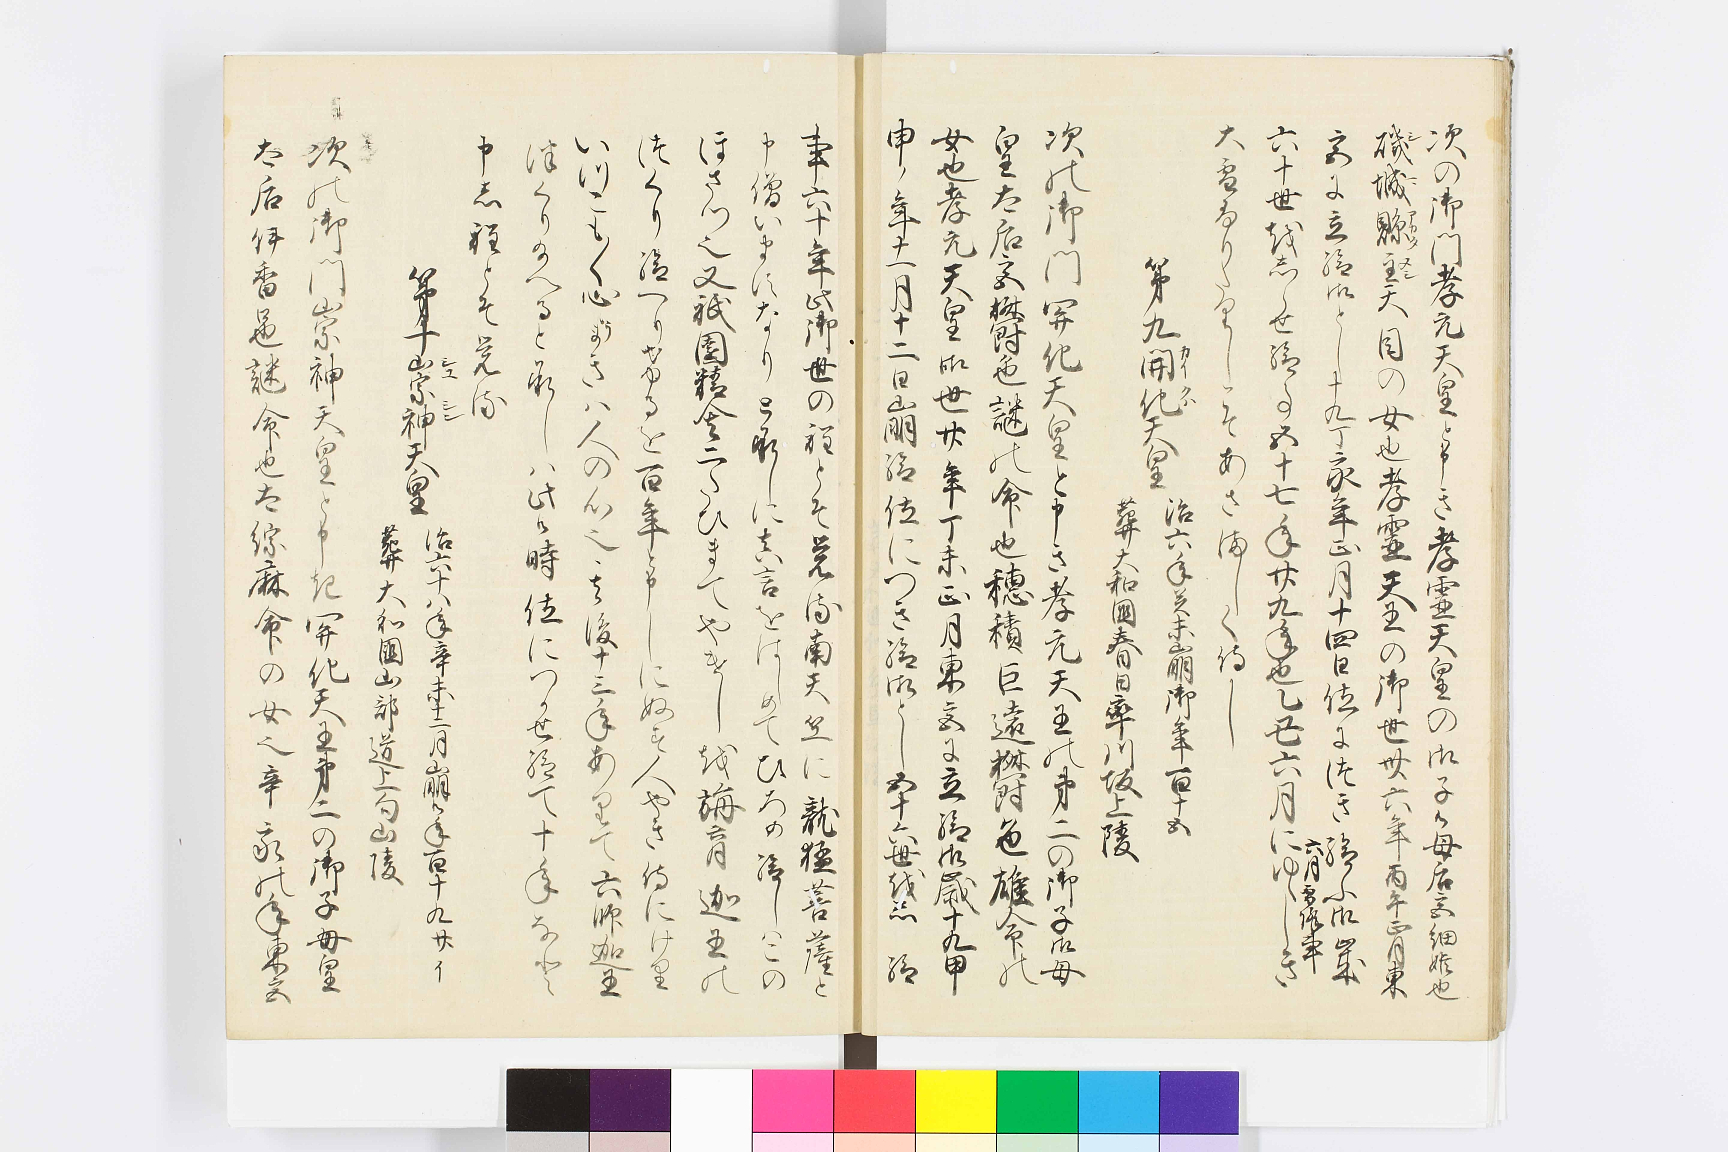 次の御門孝元天皇と申き孝霊天皇の御子御母后宮細媛也
磯城縣主大目の女也孝霊天王の御世卅六年丙午正月東
宮に立給御とし十九丁亥年正月十四日位につき給ふ御歳
六十世をしらせ給事五十七年廿九年也乙丑六月にゆゝしき
六月雪降事
大雪ふりたりしこそあさましく侍し
第九開化天皇
治六十年癸未崩御年百十五
葬大和國春日率川坂上陵
次の御門開化天皇と申き孝元天王の第二の御子御母
皇太后宮欝色謎の命也穂積臣遠欝色雄命の
女也孝元天皇御世廿年丁未正月東宮に立給御歳十九甲
申ノ年十一月十二日崩給位につき給御とし五十六世をしり給
事六十年此御世の程とそ覚侍南天竺に龍猛菩薩と
申僧いますなりと承しに真言をはしめてひろめ給しはこの
ほさつ也又祇園精舎二たひまてやけしを旃育迦王の
つくり給へりけるを百年と申しにぬす人やき侍にけり
いつこもく心うきは人の心也その後十三年ありて六師迦王
つくりのへると承しは此御時位につかせ給て十年なと
申し程とそ覚侍
第十崇神天皇
治六十八年辛未十二月崩御年百十九廿イ
葬大和國山部道上勾山陵
次の御門崇神天皇と申き開化天王第二の御子母皇
太后伊香色謎命也大綜麻命の女也辛亥の年東宮